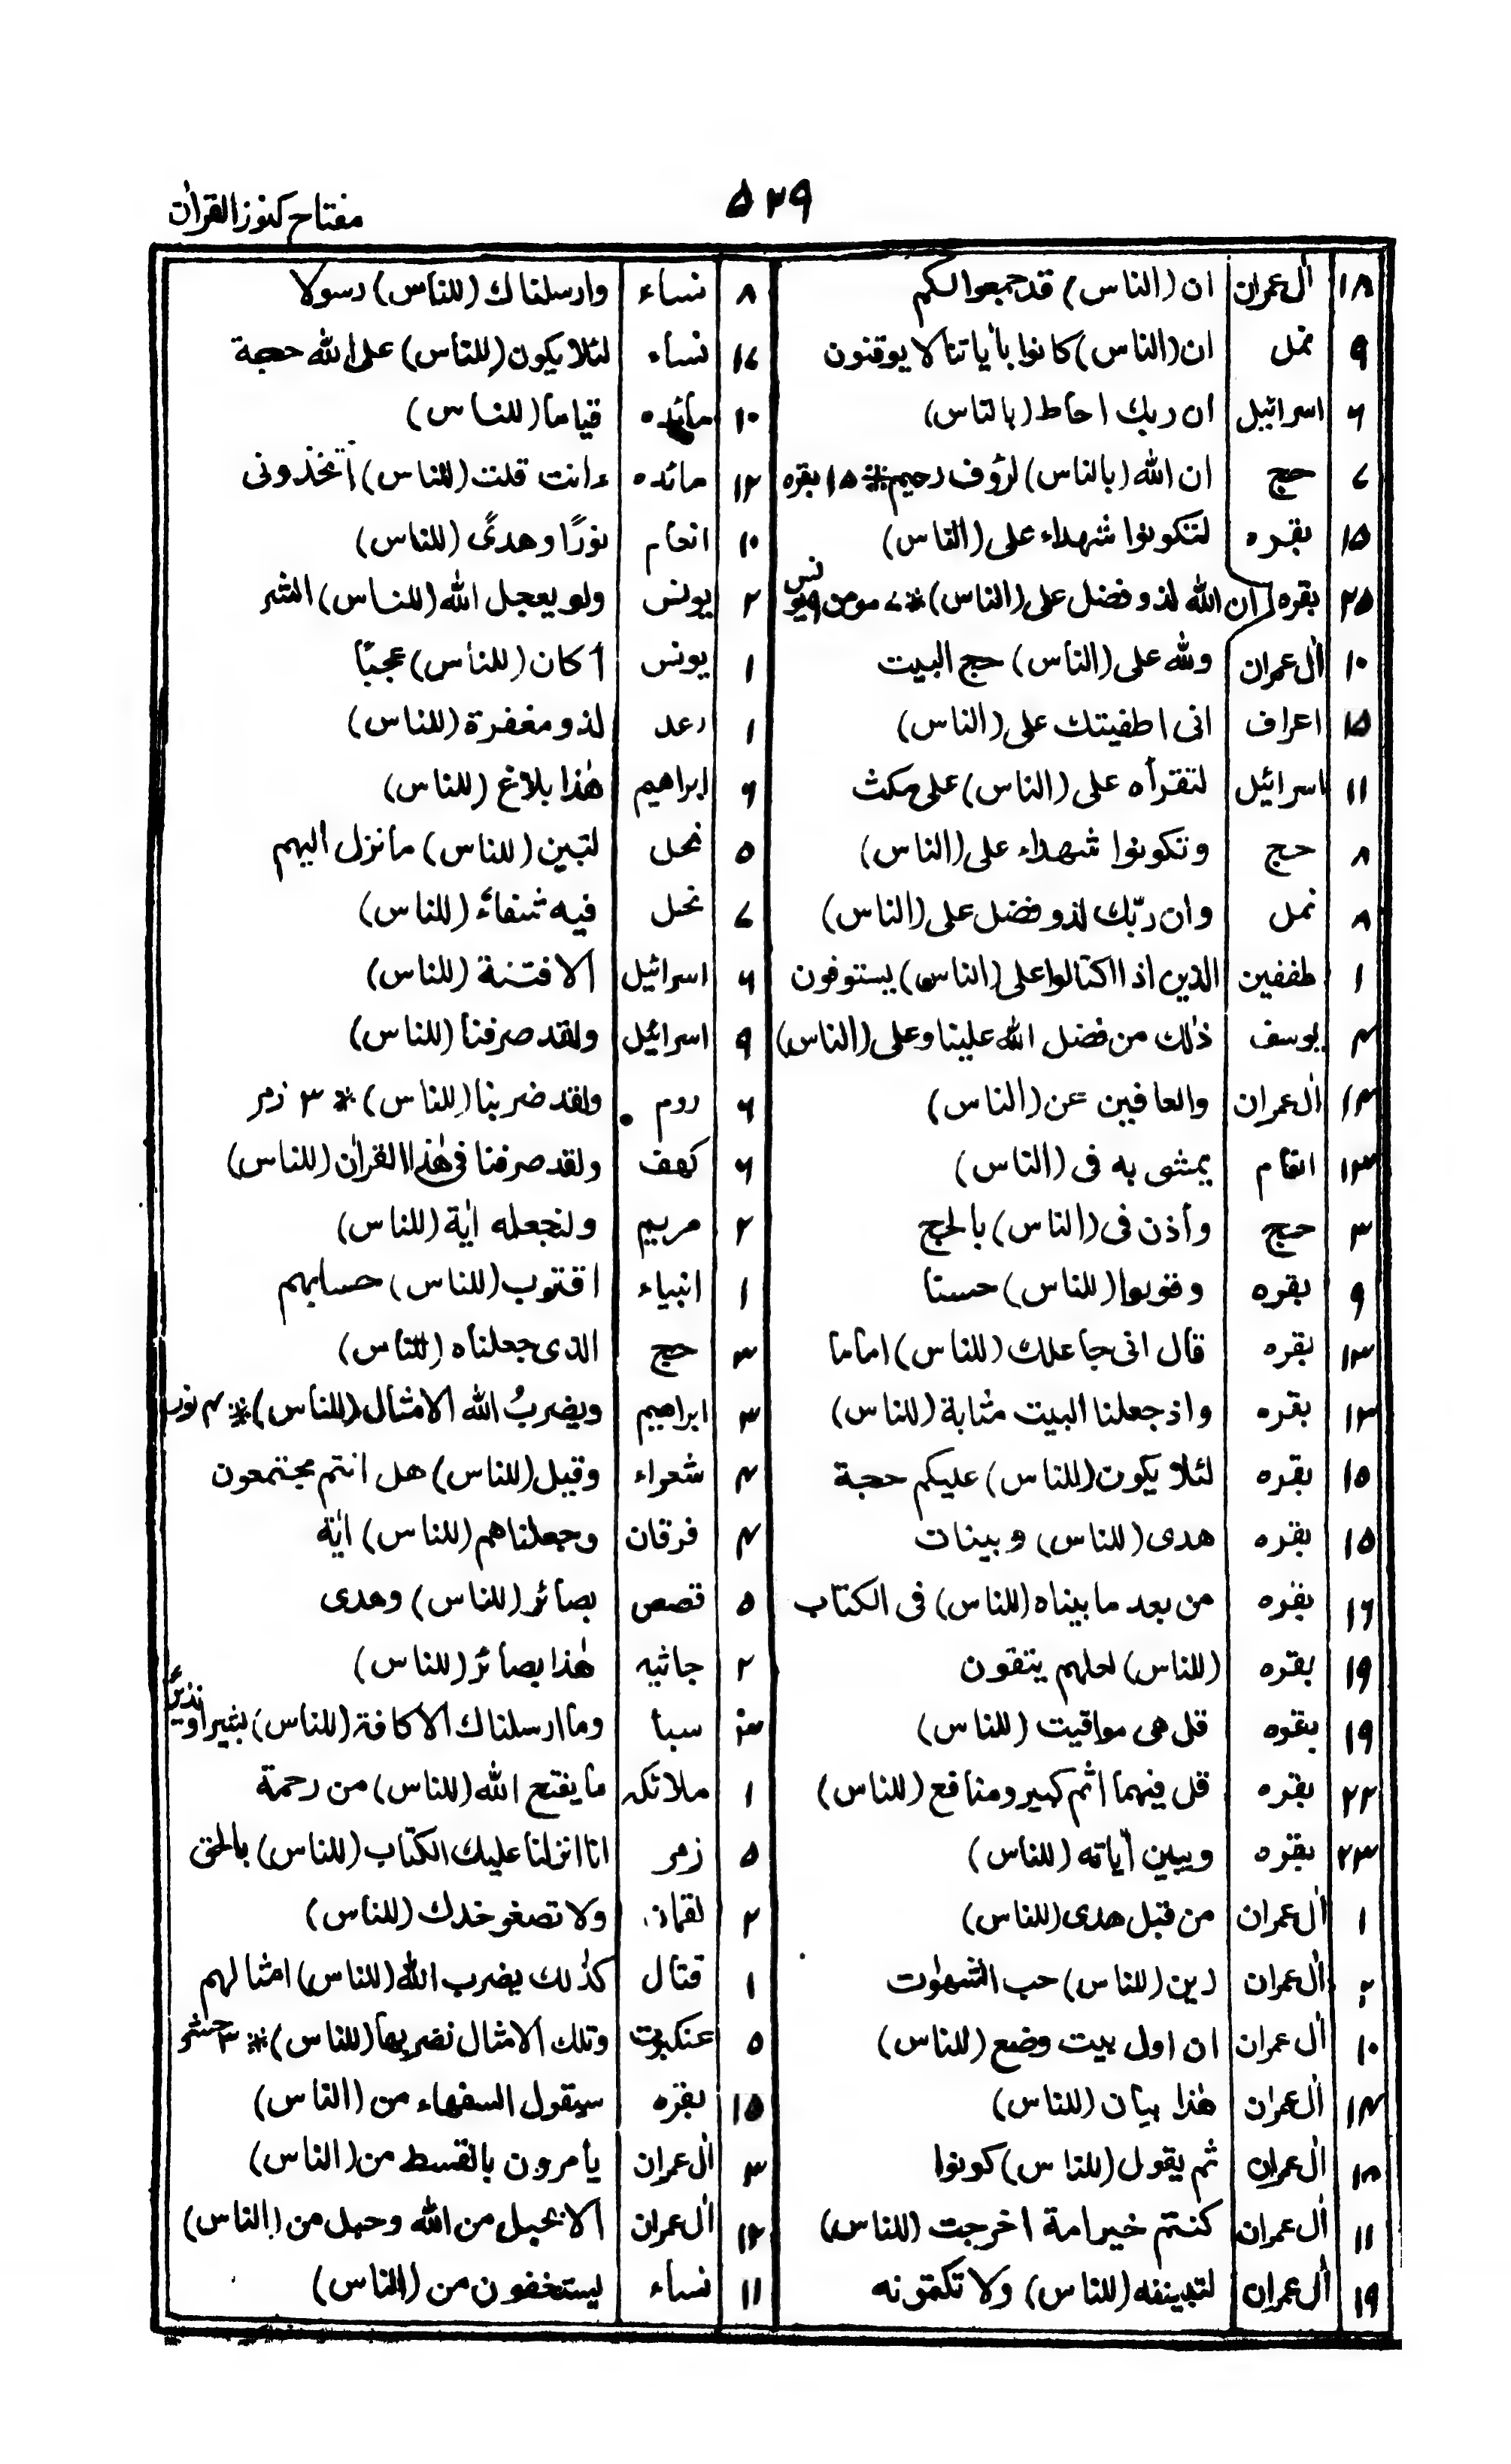 مفتاح كنوز القرآن
۵۳۹
۱۸ اٰل عمران ان (الناس) قد جمعوا لكم
۹ نمل ان (الناس) كانوا بأياتنا لا يوقنون
۶ اسرائيل ان ربك احاط (بالناس)
۷ حج ان الله (بالناس) لرؤف رحيم * ۱۵ بقره
۱۵ بقره لتكونوا شهداء على (الناس)
۲۵ بقره ان الله لذو فضل على (الناس) * ۷ مومن ۹ يونس
۱۰ اٰل عمران ولله على (الناس) حج البيت
۱۵ اعراف انى اطفيتك على (الناس)
۱۱ اسرائيل لتقرأه على (الناس) على مكث
۸ حج وتكونوا شهداء على (الناس)
۸ نمل وان ربّك لذو فضل على (الناس)
۱ طففين الذين اذا اكتالوا على (الناس) يستوفون
۴ يوسف ذٰلك من فضل الله علينا وعلى (الناس)
۱۴ اٰل عمران والعافين عن (الناس)
۱۳ انعام يمشى به فى (الناس)
۳ حج وأذن فى (الناس) بالحج
۹ بقره وقولوا (للناس) حسنا
۱۳ بقره قال انى جاعلك (للناس) اماما
۱۳ بقره واذ جعلنا البيت مثابة (للناس)
۱۵ بقره لئلا يكون (للناس) عليكم حجة
۱۵ بقره هدى (للناس) وبينات
۱۶ بقره من بعد ما بيناه (للناس) فى الكتاب
۱۹ بقره (للناس) لعلهم يتقون
۱۹ بقره قل هى مواقيت (للناس)
۲۲ بقره قل فيهما اثم كبير ومنافع (للناس)
۲۳ بقره ويبين اٰياته (للناس)
۱ اٰل عمران من قبل هدى (للناس)
۲ اٰل عمران زين (للناس) حب الشهوٰت
۱۰ اٰل عمران ان اول بيت وضع (للناس)
۱۴ اٰل عمران هٰذا بيان (للناس)
۱۸ اٰل عمران ثم يقول (للناس) كونوا
۱۱ اٰل عمران كنتم خير امة اخرجت (للناس)
۱۹ اٰل عمران لتبيننه (للناس) ولا تكتمونه
۸ نساء وارسلناك (للناس) رسولا
۱۷ نساء لئلا يكون (للناس) على الله حجة
۱۰ مائده قياما (للناس)
۱۲ مائده ءانت قلت (للناس) اتخذونى
۱۰ انعام نورًا وهدىً (للناس)
۲ يونس ولو يعجل الله (للناس) الشر
۱ يونس أكان (للناس) عجبًا
۱ رعد لذو مغفرة (للناس)
۶ ابراهيم هٰذا بلاغ (للناس)
۵ نحل لتبين (للناس) ما نزل اليهم
۷ نحل فيه شفاءٌ (للناس)
۶ اسرائيل الا فتنة (للناس)
۹ اسرائيل ولقد صرفنا (للناس)
۶ روم ولقد ضربنا (للناس) * ۳ زمر
۶ كهف ولقد صرفنا فى هٰذا القراٰن (للناس)
۲ مريم ولنجعله اٰية (للناس)
۱ انبياء اقترب (للناس) حسابهم
۳ حج الذى جعلناه (للناس)
۳ ابراهيم ويضربُ الله الامثال (للناس) * ۴ نور
۴ شعراء وقيل (للناس) هل انتم مجتمعون
۴ فرقان وجعلناهم (للناس) اٰية
۵ قصص بصائر (للناس) وهدى
۲ جاثيه هٰذا بصائر (للناس)
۳ سبا وما ارسلناك الا كافة (للناس) بشيرا ونذيرً
۱ ملائكه ما يفتح الله (للناس) من رحمة
۵ زمر انا انزلنا عليك الكتاب (للناس) بالحق
۲ لقمان ولا تصغر خدك (للناس)
۱ قتال كذٰلك يضرب الله (للناس) امثالهم
۵ عنكبوت وتلك الامثال نضربها (للناس) * ۳ حشر
۱۵ بقره سيقول السفهاء من (الناس)
۳ اٰل عمران يأمرون بالقسط من (الناس)
۱۲ اٰل عمران الا بحبل من الله وحبل من (الناس)
۱۱ نساء يستخفون من (الناس)